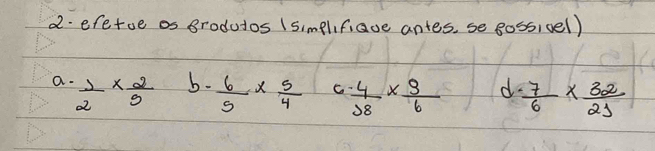 2- efetue os produtos (simplifique antes, se possível)
a- 1/2 × 2/5 b- 6/5 × 5/4 c- 4/18 × 9/6 d- 7/6 × 32/21